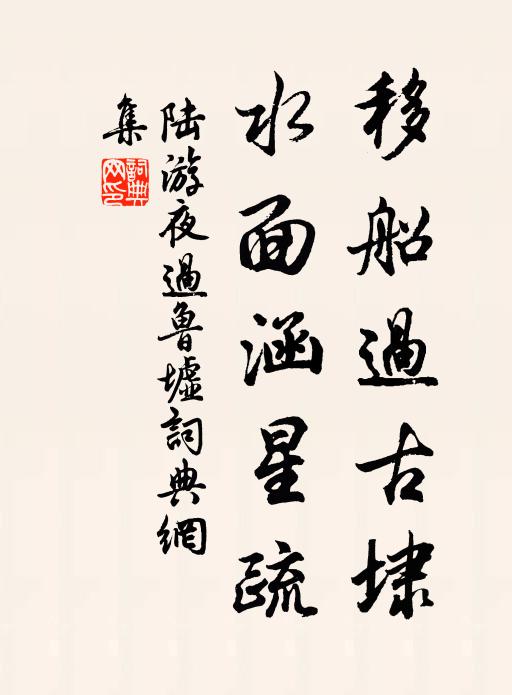 移船過古埭
水面涵星疏
陆游夜過魯墟詞典網
集
詞典网印